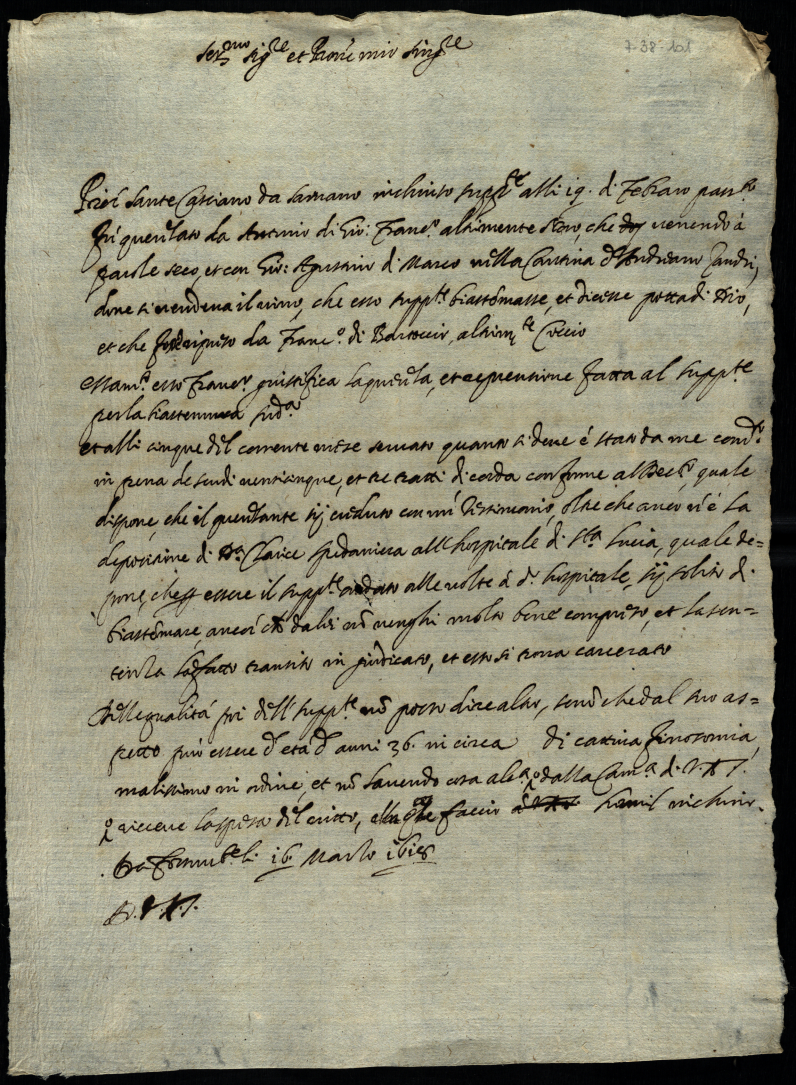 Ser.mo Sig.re et Prone mio Sing.re
7-38-101
Sante da Sassano inchinito supp.te alli 19. di Febraro pass.to
fù querelato da Antonio di Gio: Franc.o altrimente che venendo à
parole seco, et con Gio: Agustino di Marco nella Cantina d'Andreano
dove si vendeva il vino, che esso supp.te biastemasse, et dicesse potta di Dio,
et che ripreso da Franc.o di altrim.te Coccio
esso Franc.o giustifica la querela, et reprensione fatta al supp.te
per la biastemma sud.a
et alli cinque del corrente mese servato quanto si deve è stato da me cond.to
in pena de scudi venticinque, et tre tratti di corda conforme quale
dispone, che il querelante sij creduto con un Testimonio, oltre che anco vi è la
depositione di Clarice spedaniera all'hospitale di S.ta Lucia, quale de=
pone, essere il supp.te andato alle volte à d.o hospitale, sij solito di
biastemare, ancor che da lei nõ venghi molto bene compreso, et la sen=
tenza fatto transito in giudicato, et esso si trova carcerato
Delle qualità poi dell supp.te nõ posso dire altro, senõ che dal suo as=
petto può essere d'età d'anni 36. in circa di cattiva finosomia,
malissimo in ordine, et nõ havendo cosa alc.a dalla Cam.a di V.A.S.
riceve la spesa del vitto, alla q.le faccio humil inchino.
16. Marzo 1618
D. V.A.S.